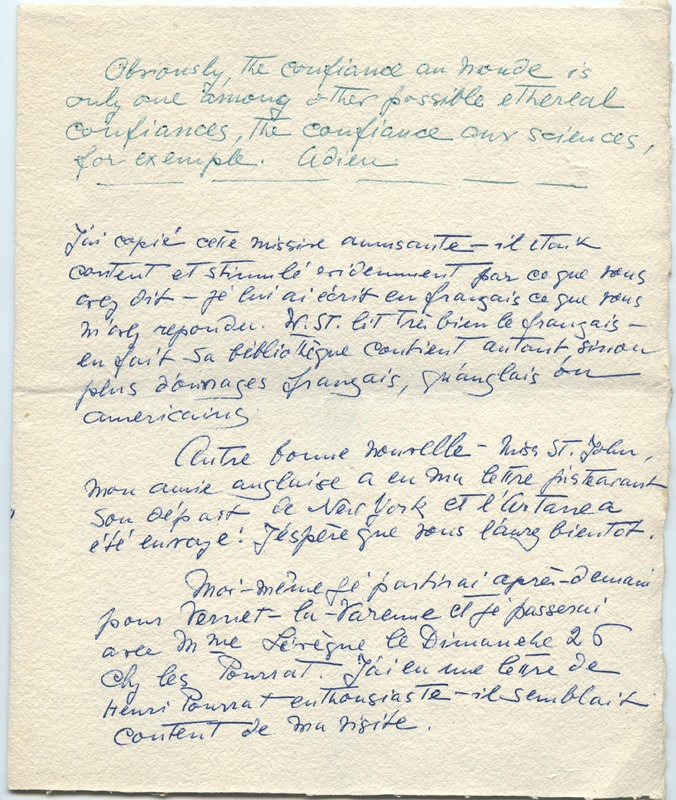 Obviously, the confiance au monde is
only one among other possible ethereal
confiances, the confiance aux sciences,
for exemple. Adieu
J'ai copié cette missive amusante – il était
content et stimulé evidemment par ce que vous
avez dit – je lui ai écrit en français ce que vous
m'avez repondu. W. ST. lit très bien le français –
en fait sa bibliothèque contient autant sinon
plus d'ouvrages français, qu'anglais ou
americains
Autre bonne nouvelle – Miss St. John,
mon amie anglaise a eu ma lettre juste avant
son départ de New York et l'Artane a
été envoyé! J'éspère que vous l'aurez bientot.
Moi-même je partirai après-demain
pour Vernet-la-Varenne et je passerai
avec Mme Lévègne le Dimanche 26
Chez les Pourrat. J'ai eu une lettre de
Henri Pourrat enthousiaste – il semblait
content de ma visite.